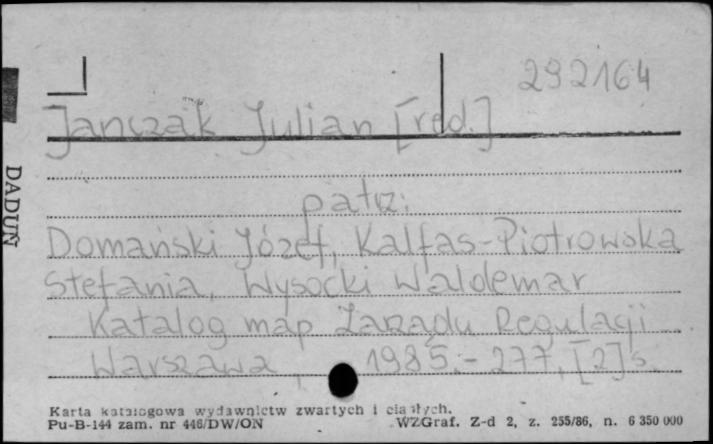 292164
Janczak Julian [red.]
patrz:
Domański Józef, Kalfas-Piotrowska
Stefania, Wysocki Waldemar
Katalog map Zarządu Regulacji
Warszawa, 1985.- 277, [2] s.
DADUŃ
Karta katalogowa wydawnictw zwartych i ciągłych.
Pu-B-144 zam. nr 446/DW/ON WZGraf. Z-d 2, z. 255/86, n. 6 350 000